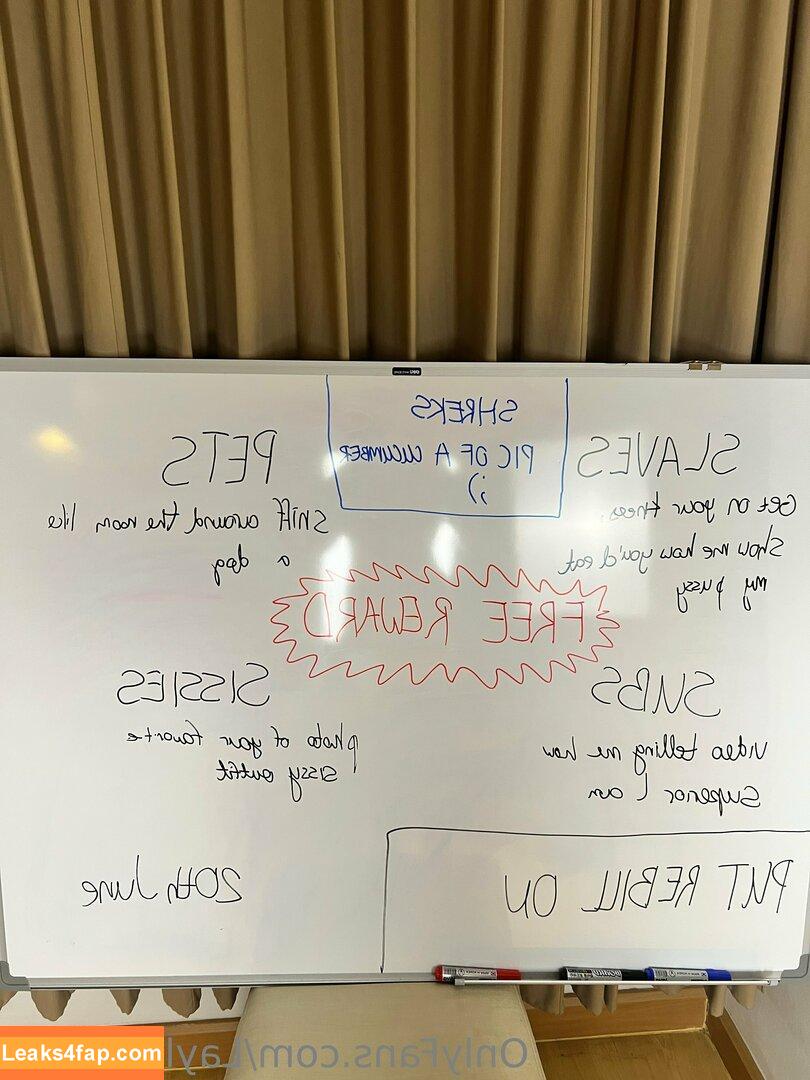 SHREKS
PIC OF A CUCUMBER
;)
SLAVES
Get on your knees,
show me how you'd eat
my pussy
PETS
Sniff around the room like
a dog
FREE REWARD
SUBS
Video telling me how
superior I am
SISSIES
photo of your favorite
sissy outfit
PUT REBILL ON
20th June
OnlyFans.com/Layl
Leaks4fap.com